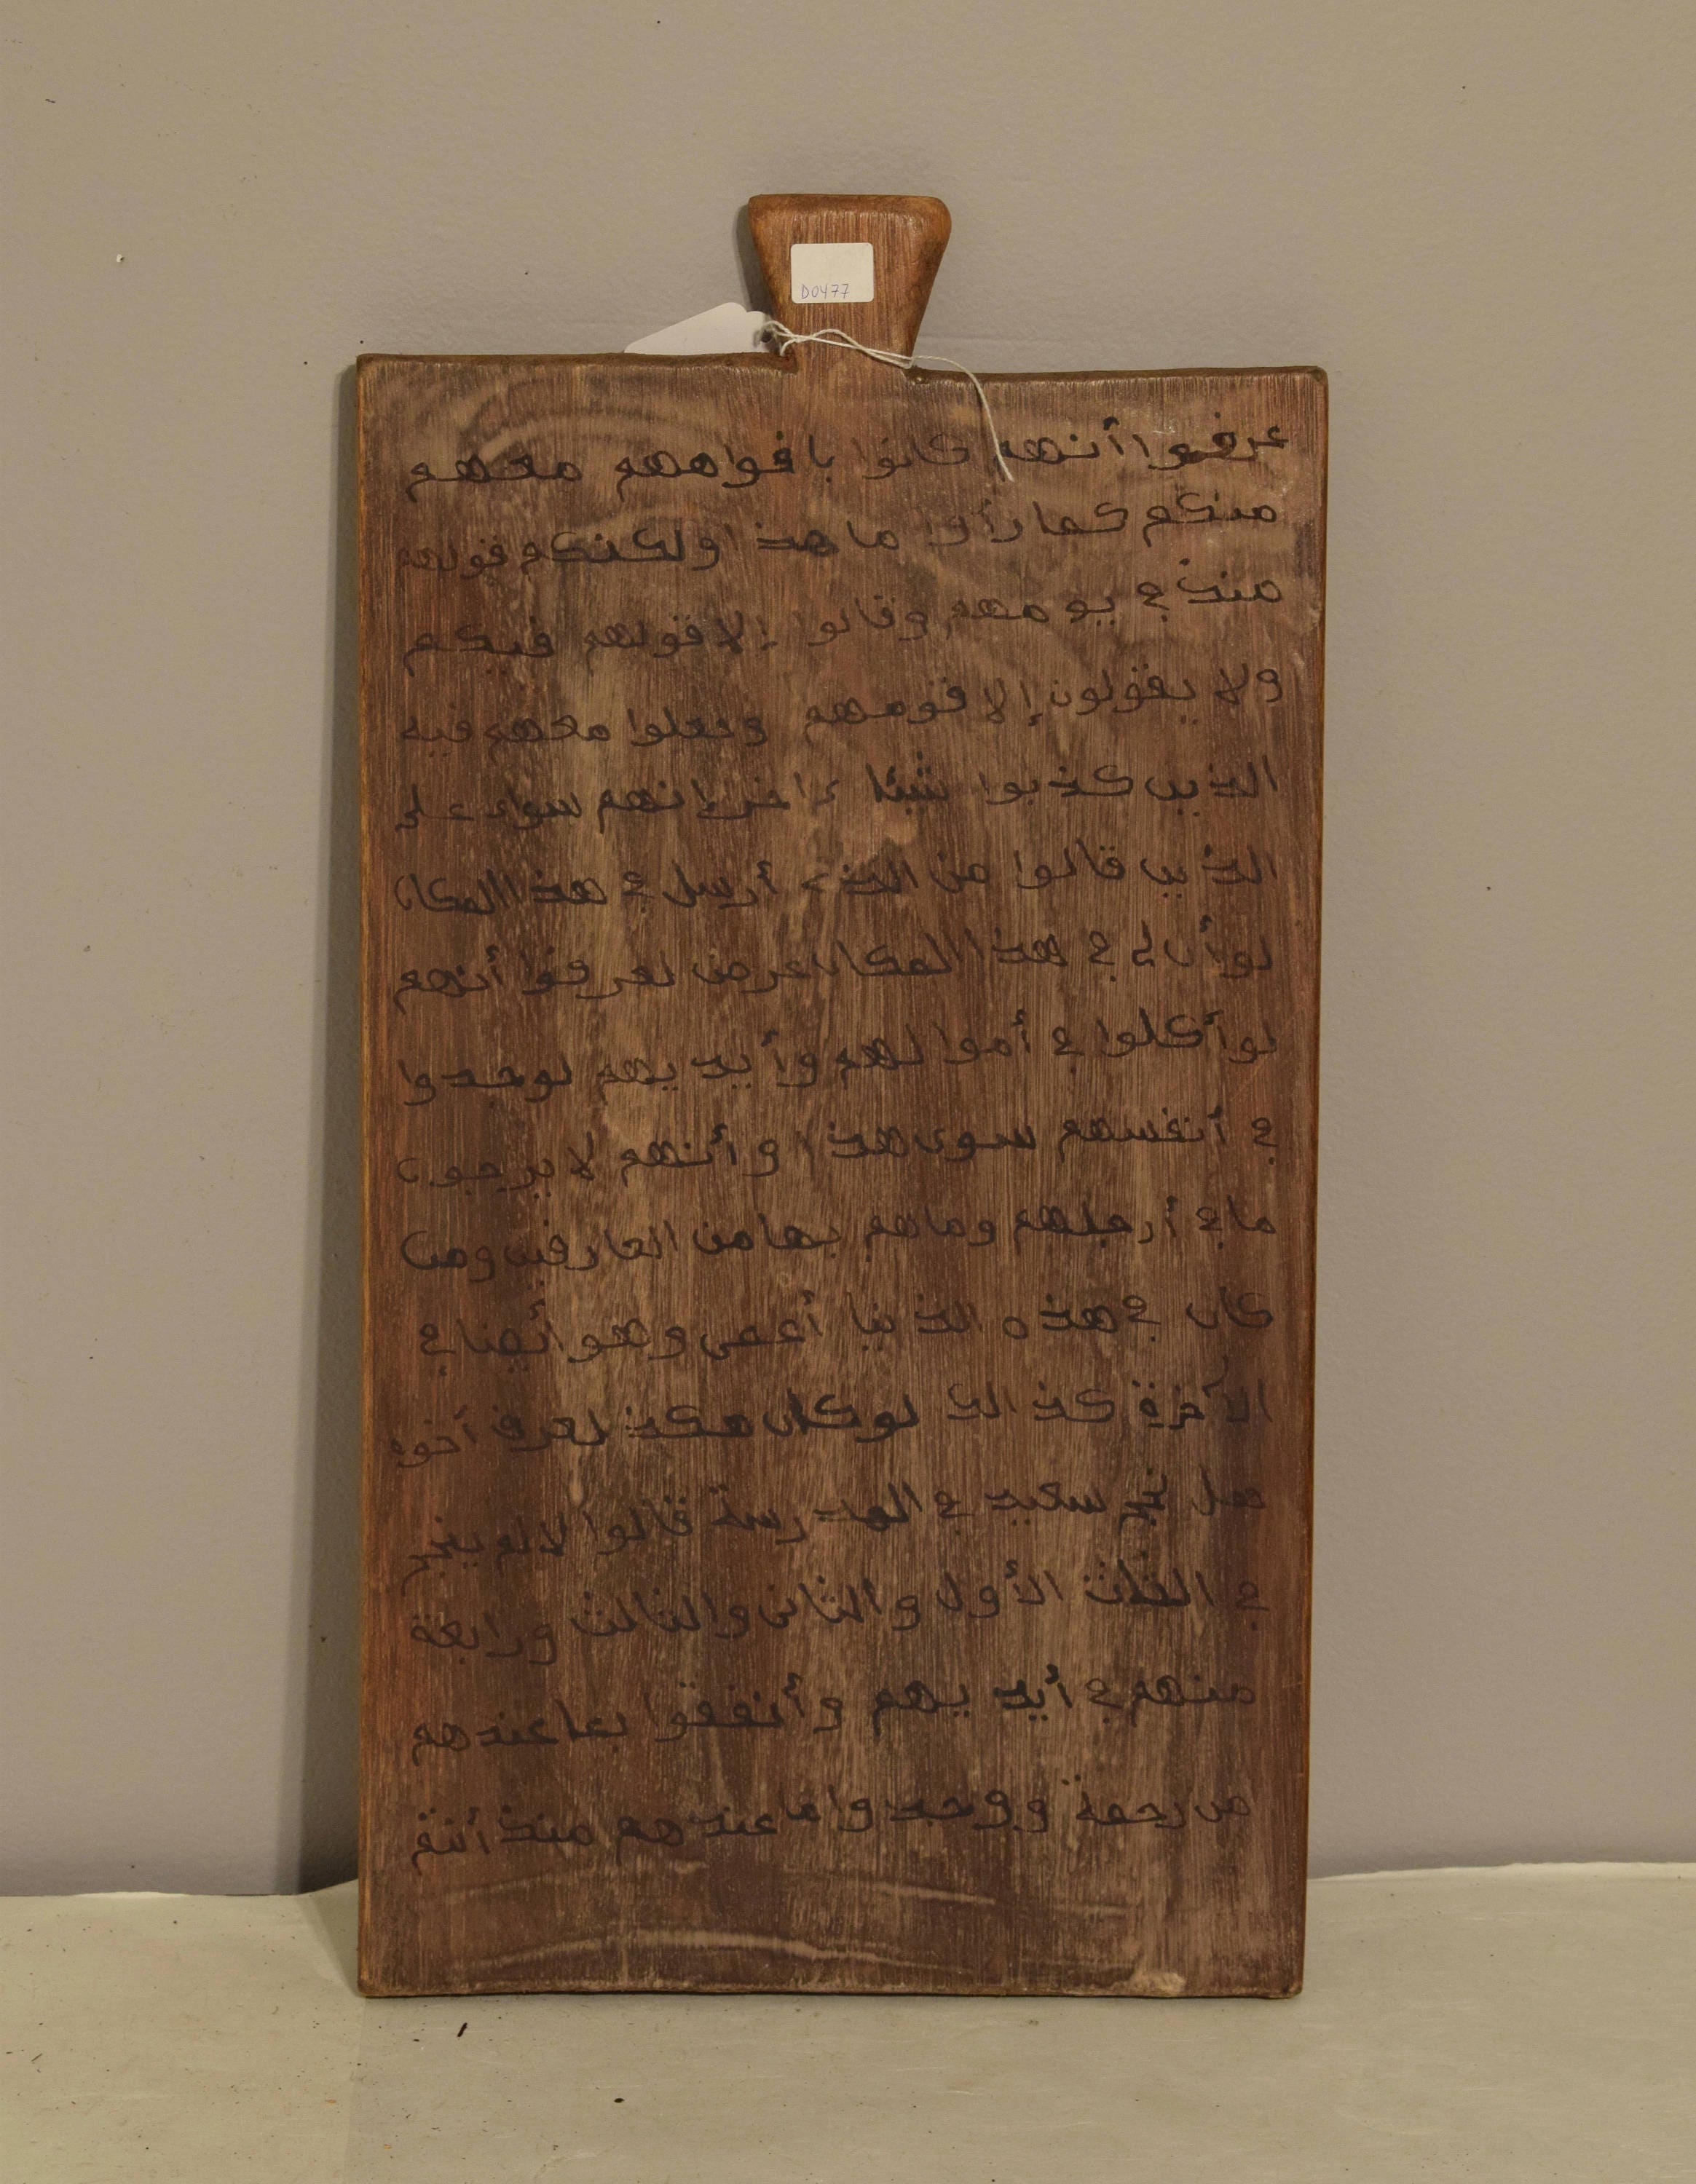 D0477
عرفوا أنهم كانوا بافواههم معهم
منكم كما رأوا ما هذا ولكنكم قولهم
منذ في يومهم وقالوا إلا قولهم فيكم
ولا يقولون إلا قومهم وفعلوا معهم فيه
الذين كذبوا شئا ءاخر إنهم سواء على
الذين قالوا من الذي أرسل في هذا المكان
لو أن لي في هذا المكان عرض لعرفوا أنهم
لو أكلوا في أموالهم وأيديهم لوجدوا
في أنفسهم سوى هذا وأنهم لا يرجون
ما في أرجلهم وما هم بها من العارفين ومن
كان في هذه الدنيا أعمى وهو أيضا في
الآخرة كذالك لو كان هكذ لعرف أخوه
هل نجح سعيد في المدرسة قالوا لا لم ينجح
في الثلث الأول والثاني والثالث ورابعة
منهم في أيديهم وأنفقوا بما عندهم
من رحمة ووجدوا ما عندهم منذ أنتم